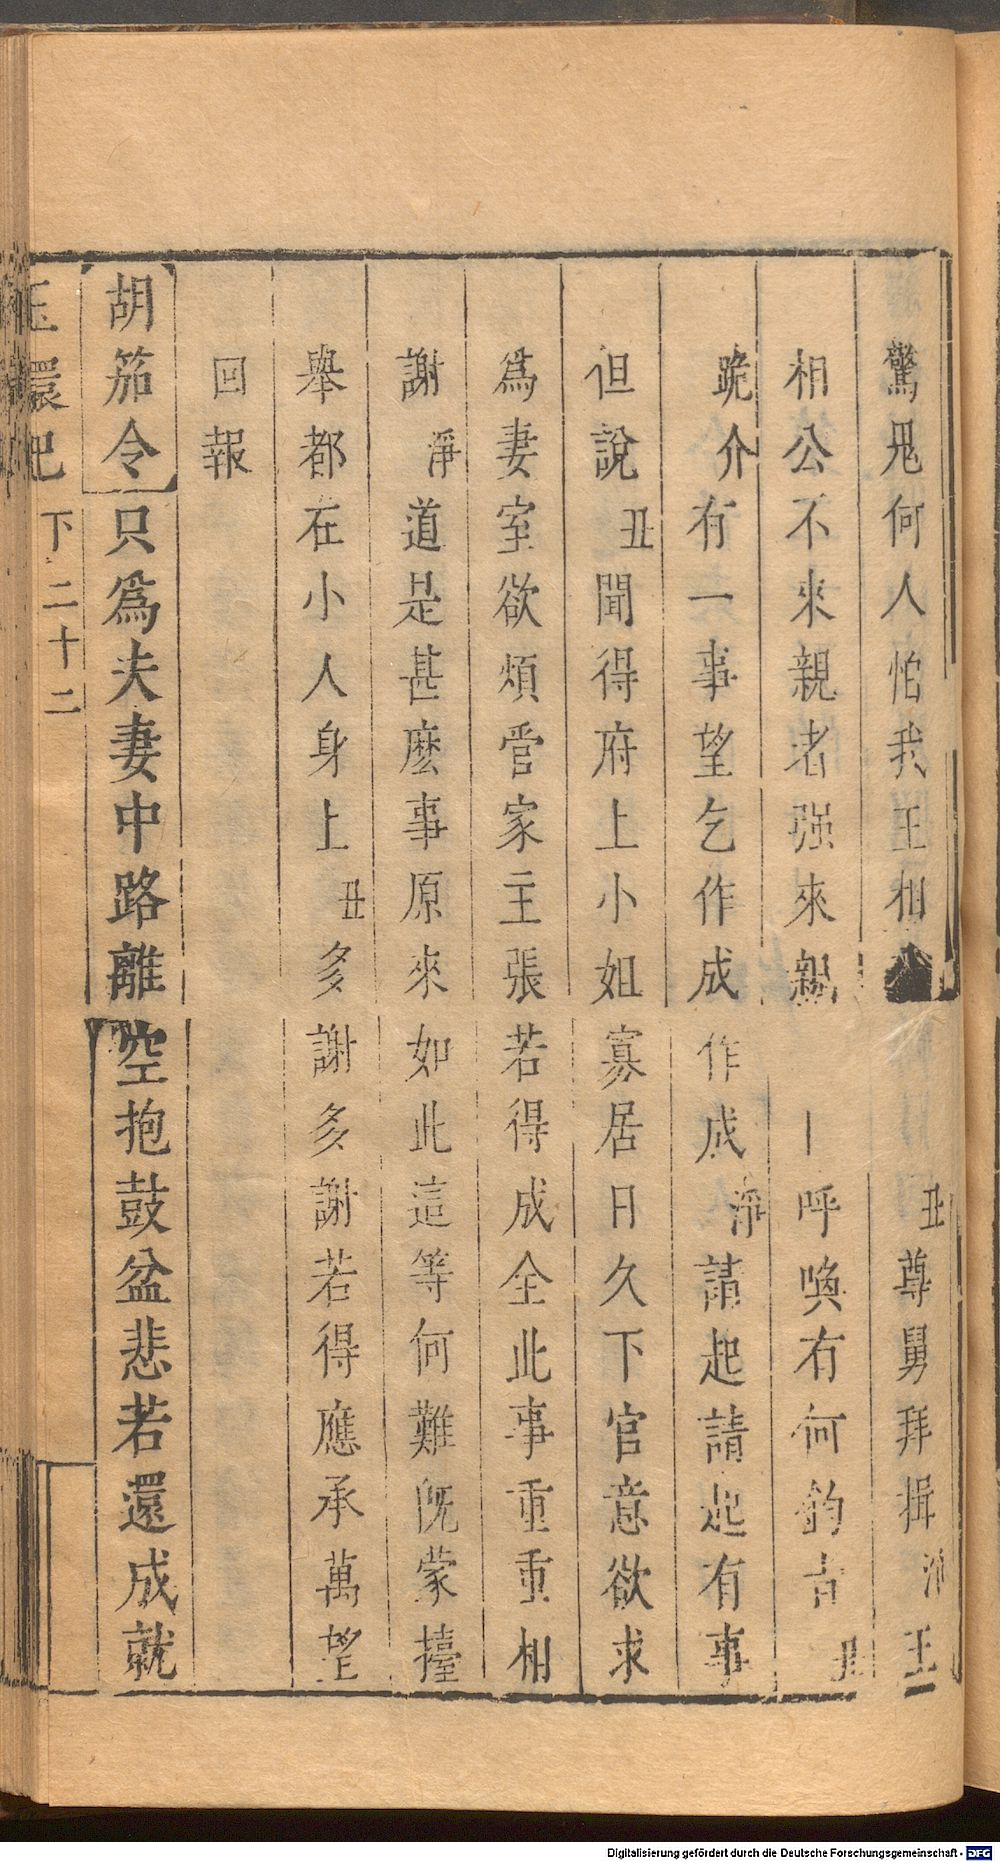 驚鬼何人怕我王相公丑尊舅拜揖淨王
相公不來親者强來親一呼喚有何鈞旨丑
跪介有一事望乞作成作成淨請起請起有事
但說丑聞得府上小姐寡居日久下官意欲求
爲妻室欲煩官家主張若得成全此事重重相
謝淨道是甚麽事原來如此這等何難旣蒙擡
舉都在小人身上丑多謝多謝若得應承萬望
回報
胡笳令只爲夫妻中路離空抱鼓盆悲若還成就
玉環記 下 二十二
Digitalisierung gefördert durch die Deutsche Forschungsgemeinschaft - DFG